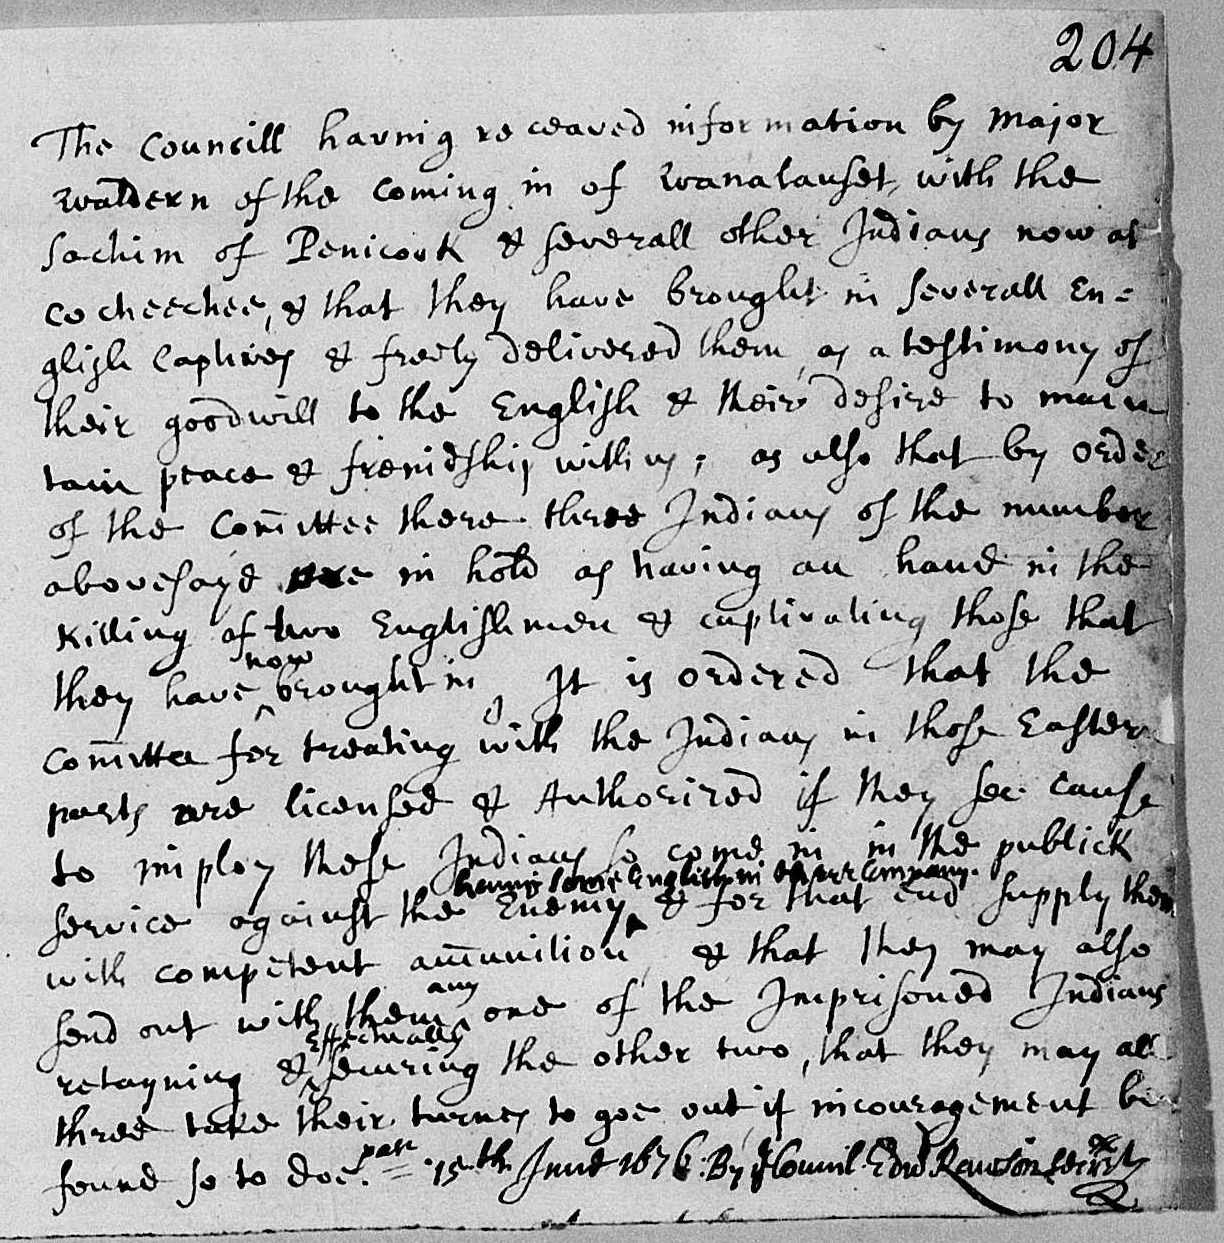 204
The Councill having receaved information by Major
Waldern of the Coming in of Wanalauset, with the
Sachim of Penicook & severall other Indians now at
Cocheechee, & that they have brought in severall En=
glish Captives & freely delivered them, as a testimony of
their goodwill to the English & their desire to main
tain peace & freindship with us; as also that by order
of the Comittee there three Indians of the number
abovesayd are in hold as having an hand in the
killing of two Englishmen & captivating those that
now
they have ^ brought in, It is ordered that the
Comittee for treating with the Indians in those Eastern
parts are licensed & Authorized if they see cause
to imploy these Indians so come in in the publick
having some English in their Company.
service against the Enemy ^ & for that end supply them
with competent amunition, & that they may also
any
send out with them ^ one of the Imprisoned Indians
Effectually
retayning & ^ securing the other two, that they may all
three take their turnes to goe out if incouragement be
found so to doe. past 15th June 1676. By ye Council Edw Rawson Secrty